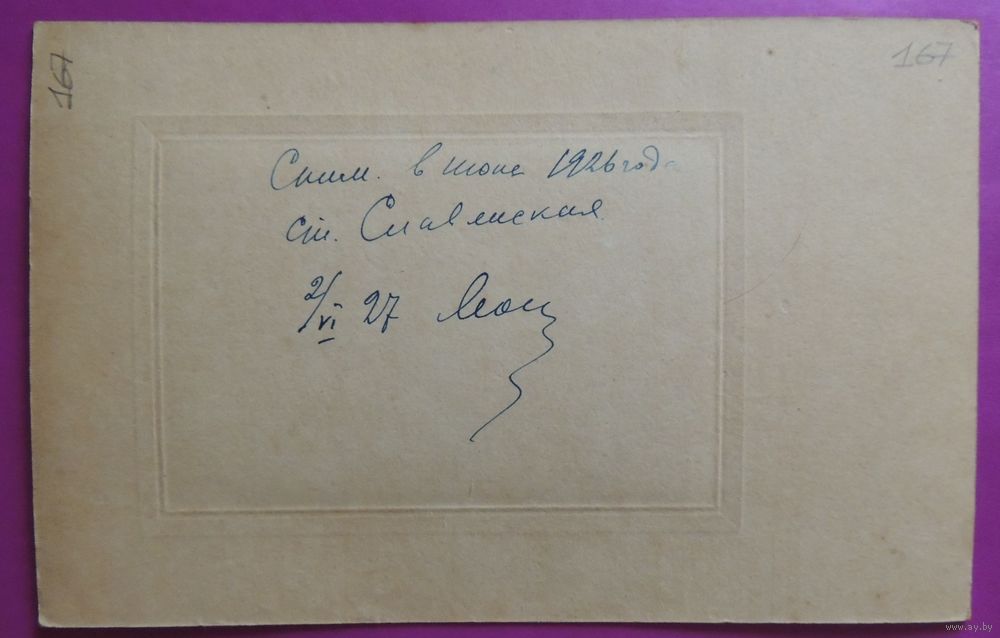 167
167
Сним. в июне 1926 года
ст. Славянская
2/VI 27
www.ay.by